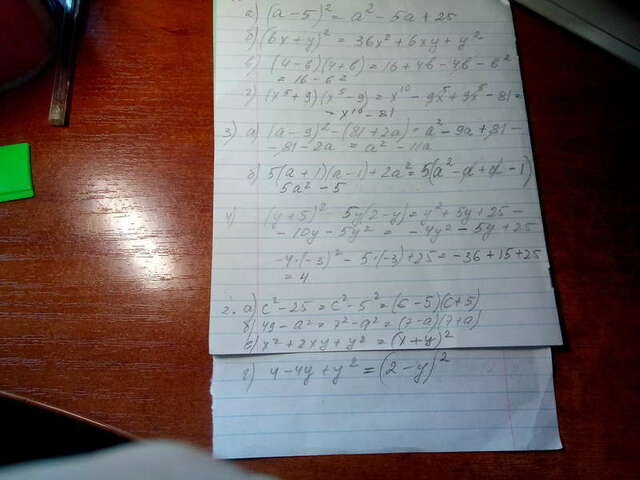 а) (a-5)² = a² - 5a + 25
б) (6x+y)² = 36x² + 6xy + y²
в) (4-b)(4+b) = 16 + 4b - 4b - b²
= 16 - b²
г) (x⁵+9)(x⁵-9) = x¹⁰ - 9x⁵ + 9x⁵ - 81 =
= x¹⁰ - 81
3) а) (a-9)² - (81+2a) = a² - 9a + 81 -
- 81 - 2a = a² - 11a
б) 5(a+1)(a-1) + 2a² = 5(a² - a + a - 1)
5a² - 5
4) (y+5)² - 5y(2-y) = y² + 5y + 25 -
- 10y - 5y² = -4y² - 5y + 25
-4·(-3)² - 5·(-3) + 25 = -36 + 15 + 25
= 4
2. а) c² - 25 = c² - 5² = (c-5)(c+5)
б) 49 - a² = 7² - a² = (7-a)(7+a)
в) x² + 2xy + y² = (x+y)²
г) 4 - 4y + y² = (2-y)²